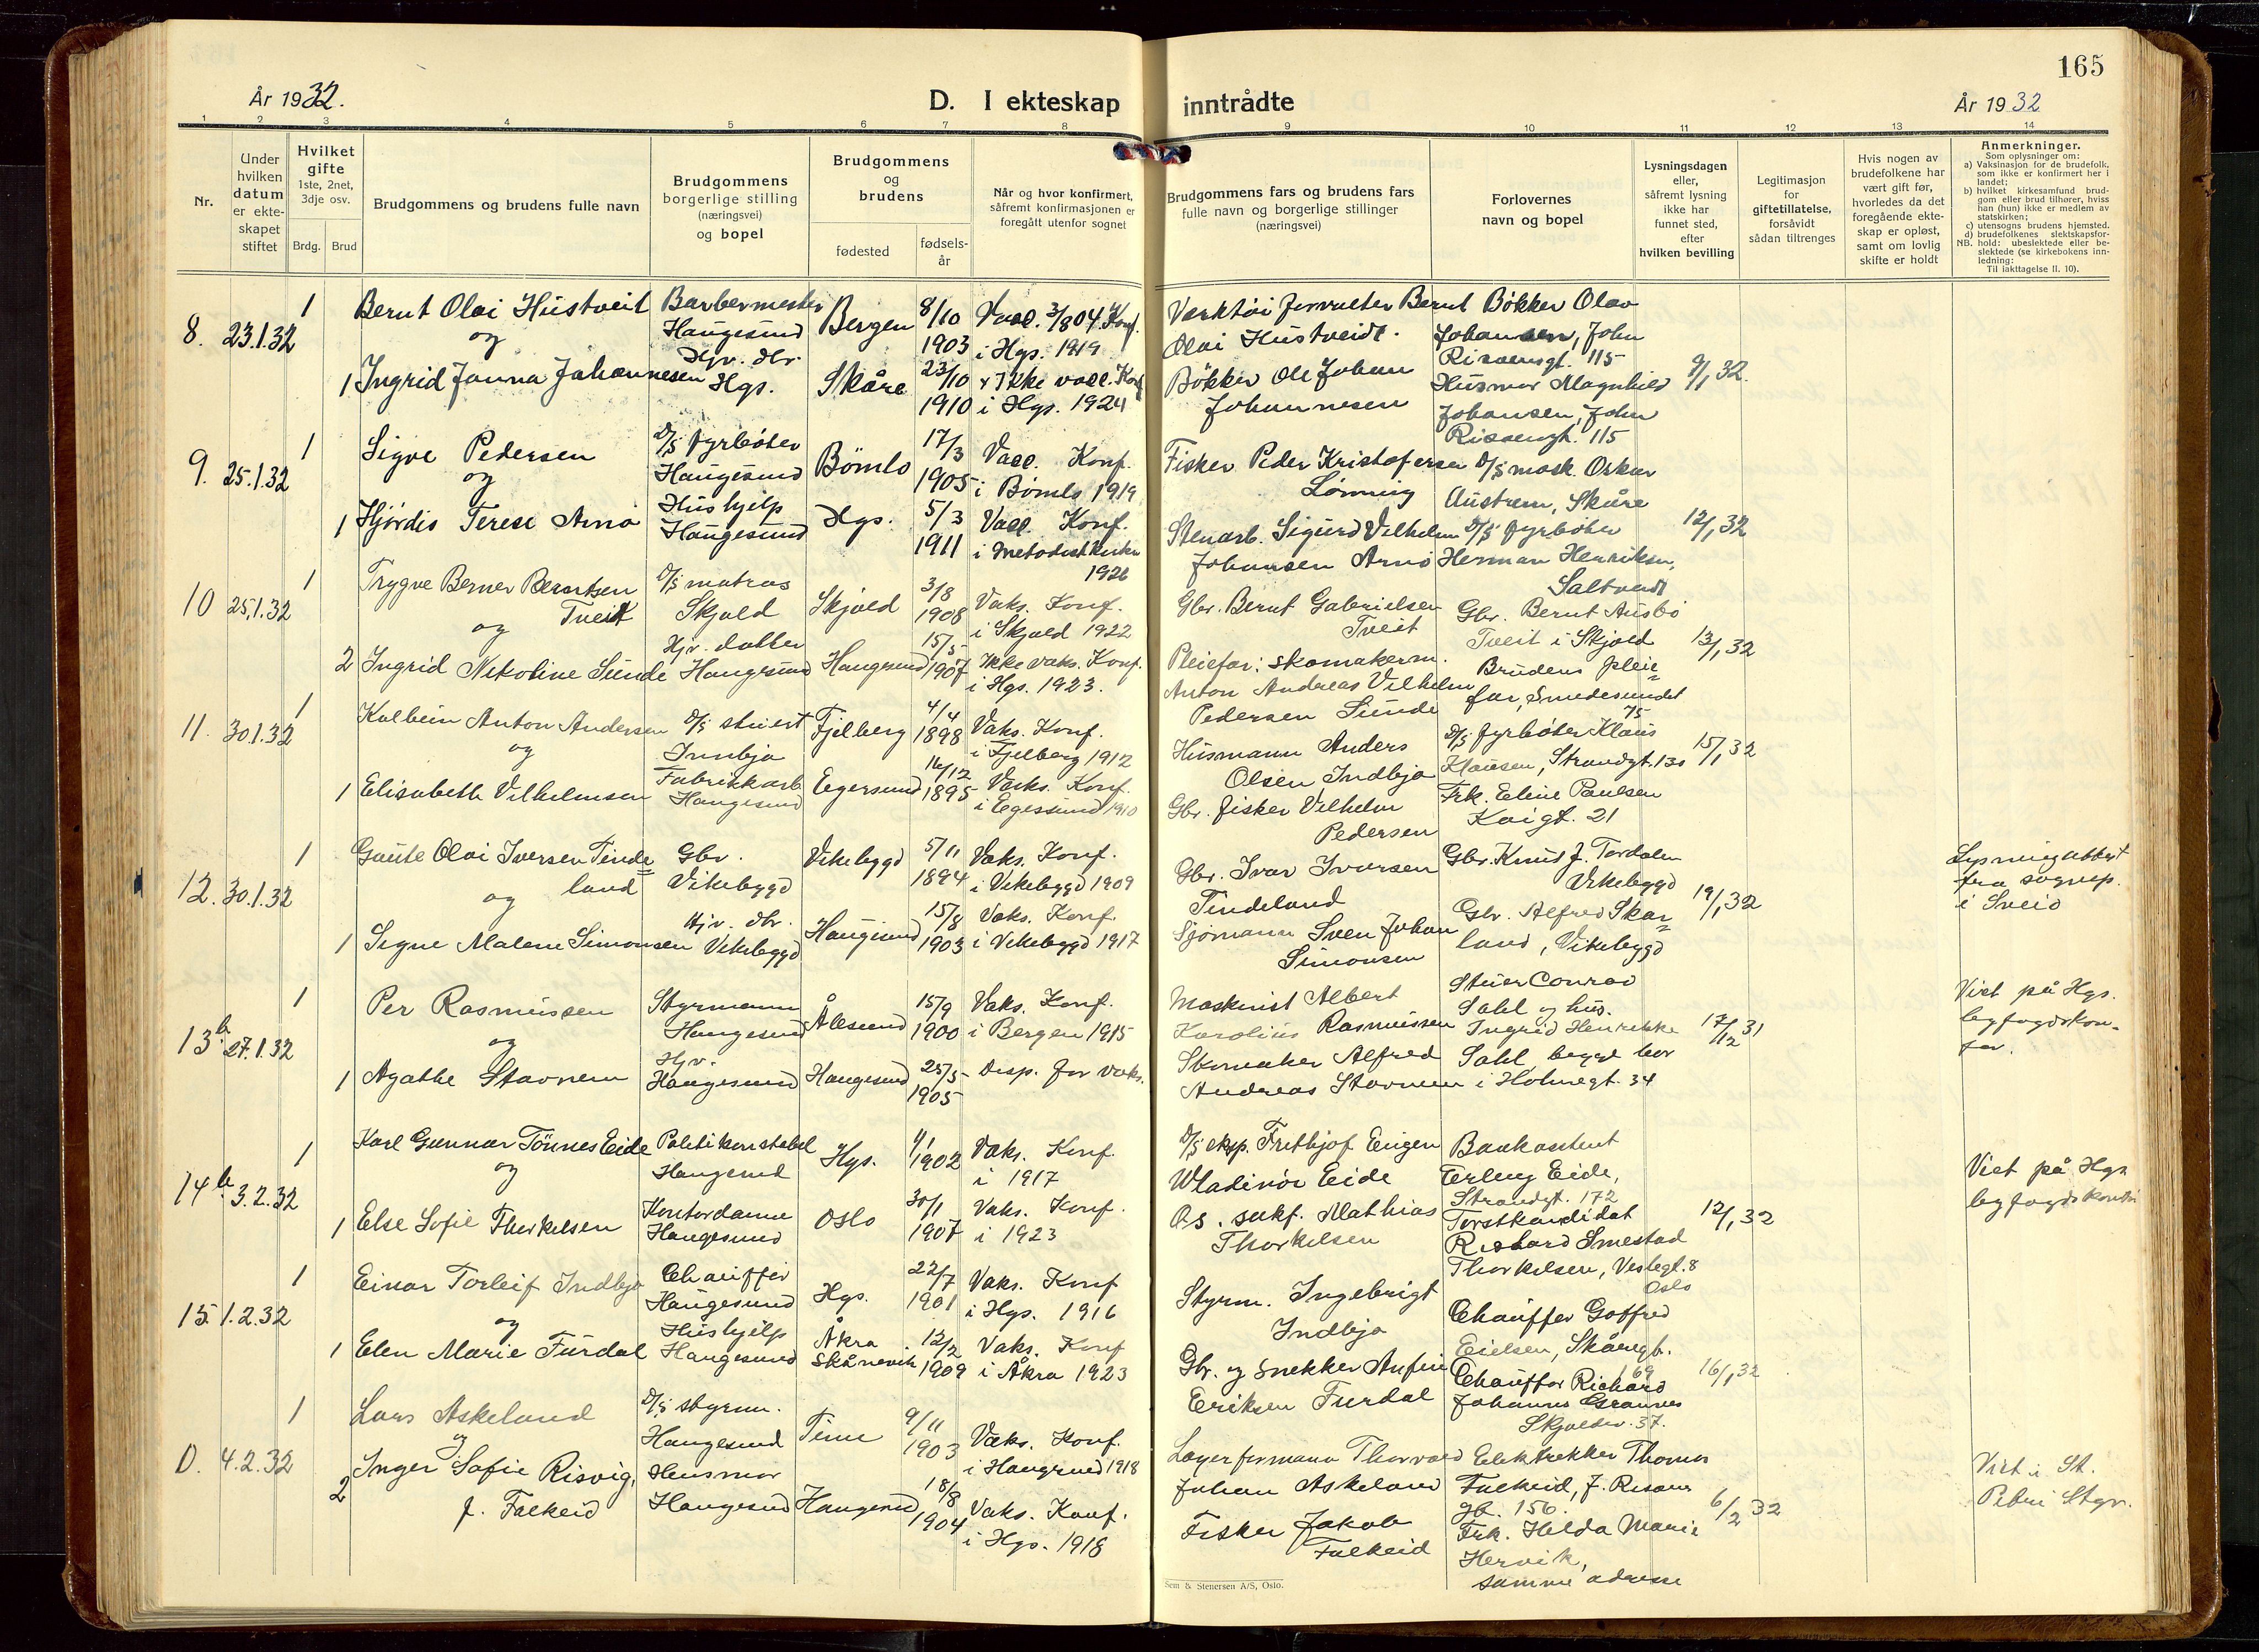 165
År 1932.
D. I ekteskap inntrådte
År 1932
1 2 3 4 5 6 7 8 9 10 11 12 13 14
Nr.
Under hvilken datum er ekte- skapet stiftet
Hvilket gifte 1ste, 2net, 3dje osv.
Brdg. Brud
Brudgommens og brudens fulle navn
Brudgommens borgerlige stilling (næringsvei) og bopel
Brudgommens og brudens
fødested
fødsels- år
Når og hvor konfirmert, såfremt konfirmasjonen er foregått utenfor sognet
Brudgommens fars og brudens fars fulle navn og borgerlige stillinger (næringsvei)
Forlovernes navn og bopel
Lysningsdagen eller, såfremt lysning ikke har funnet sted, efter hvilken bevilling
Legitimasjon for giftetillatelse, forsåvidt sådan tiltrenges
Hvis nogen av brudefolkene har vært gift før, hvorledes da det foregående ekte- skap er opløst, samt om lovlig skifte er holdt
Anmerkninger.
Som oplysninger om:
a) Vaksinasjon for de brudefolk, som ikke er konfirmert her i landet;
b) hvilket kirkesamfund brud- gom eller brud tilhører, hviss han (hun) ikke er medlem av statskirken;
c) utensogns brudens hjemsted.
d) brudefolkenes slektskapsfor- hold: ubeslektede eller be- slektede (se kirkebokens inn- ledning:
NB.
Til iakttagelse II. 10).
8. 23.1.32
1 Bernt Olai Hustveit
og
1 Ingrid Janna Johannesen
Barbermester
Haugesund
Hjv. dtr.
Hgs.
Bergen
Skåre
8/10 1903
23/10 1910
Vacc. 3/8 04. Konf.
i Hgs. 1919
Ikke vacc. Konf
i Hgs. 1924
Verktøi forvalter Bernt
Olai Hustveidt.
Bøkker Ole Johan
Johannesen
Bøkker Olav
Johansen, John
Risøensgt. 115
Husmor Magnhild
Johansen, John
Risøensgt. 115
9/1 32.
9. 25.1.32
1 Sigve Pedersen
og
1 Hjördis Terese Arnø
D/S fyrbøter
Haugesund
Hushjelp
Haugesund
Bömlo
Hgs.
17/3 1905
5/3 1911
Vacc. Konf.
i Bömlo 1919
Vacc. Konf.
i Metodistkirken
1926
Fisker Peder Kristofersen
Lønning
Stenarb. Sigurd Vilhelm
Johansen Arnø
D/S mask. Oskar
Austrem, Skåre
D/S fyrbøter
Herman Henriksen,
Saltveit
12/1 32
10 25.1.32
1 Trygve Berner Berntsen
og Tveit
2 Ingrid Nikoline Sunde
D/S matros
Skjold
Hjv. datter
Haugesund
Skjold
Haugesund
3/8 1908
15/5 1907
Vaks. Konf.
i Skjold 1922
Ikke vaks. Konf.
i Hgs. 1923.
Gbr. Bernt Gabrielsen
Tveit
Pleiefar: skomakerm.
Anton Andreas Vilhelm
Pedersen Sunde
Gbr. Bernt Ausbø
Tveit i Skjold
Brudens pleie=
far, Smedesundet
75
13/1 32
11. 30.1.32
1 Kolbein Anton Andersen
og
1 Elisabeth Vilhelmsen
D/S stuert
Innbjo
Fabrikkarb
Haugesund
Fjelberg
Egersund
4/4 1898
16/12 1895
Vaks. Konf.
i Fjelberg 1912
Vaks. Konf.
i Egersund 1910
Husmann Anders
Olsen Indbjo
Gbr. fisker Vilhelm
Pedersen
D/S fyrbøter Klaus
Klausen, Strandgt. 130
Frk. Eline Paulsen
Kaigt. 21
15/1 32
12. 30.1.32
1 Gaute Olai Iversen Tinde=
og land
1 Signe Malene Simonsen
Gbr.
Vikebygd
Hjv. dtr.
Vikebygd
Vikebygd
Haugesund
5/11 1894
15/8 1903
Vaks. Konf.
i Vikebygd 1909
Vaks. Konf.
i Vikebygd 1917
Gbr. Ivar Iversen
Tindeland
Sjömann Sven Johan
Simonsen
Gbr. Knud J. Tordalen
Vikebygd
Gbr. Alfred Skar=
land, Vikebygd
19/1 32
Lysningattest
fra sognep.
i Sveio
13 b. 27.1.32
1 Per Rasmussen
og
1 Agathe Stavnem
Styrmann
Haugesund
Hjv.
Haugesund
Ålesund
Haugesund
15/9 1900
25/5 1905
Vaks. Konf.
i Bergen 1915
Disp. for vaks.
Maskinist Albert
Karolius Rasmussen
Skomaker Alfred
Andreas Stavnem
Stuer Conrad
Sahl og hus.
Ingrid Henrikke
Sahl begge bor
i Holmegt. 34
17/12 31
Viet på Hgs.
byfogdskon-
tor.
14 b. 3.2.32
1 Karl Gunnar Tönnes Eide
og
1 Else Sofie Thorkelsen
Politikonstabel
Haugesund
Kontordame
Haugesund
Hgs.
Oslo
1/1 1902
30/1 1907
Vaks. Konf.
i 1917
Vaks. Konf.
i 1923
D/S eksp. Fritjof Eugen
Wladimir Eide
Mathias
Thorkelsen
Bankassistent
Erling Eide,
Strandgt. 172
Forstkandidat
Richard Smestad
Thorkelsen, Vestegt. 8
Oslo
12/1 32
Viet på Hgs
byfogdskontor
15. 1.2.32
1 Einar Torleif Indbjo
og
1 Elen Marie Furdal
Chauffør
Haugesund
Hushjelp
Haugesund
Hgs.
Åkra
Skånevik
22/7 1901
12/2 1909
Vaks. Konf
i Hgs. 1916
Vaks. Konf
i Åkra 1923
Styrm. Ingebrigt
Indbjo
Gbr. og snekker Anfin
Eriksen Furdal
Chauffør Gotfred
Eielsen, Skåregt.
169
Chauffør Richard
Johannes Grannes
Skjoldav. 37.
16/1 32
D. 4.2.32
1 Lars Askeland
og
2 Inger Sofie Risvig,
f. Falkeid
D/S styrm.
Haugesund
Husmor
Haugesund
Time
Haugesund
9/11 1903
18/8 1904
Vaks. Konf.
i Haugesund 1918
Vaks. Konf.
i Hgs. 1918
Lagerformann Thorvald
Johan Askeland
Fisker Jakob
Falkeid
Elektrikker Thomas
Falkeid, J. Risøens
gt. 156.
Frk. Helda Marie
Hervik,
samme adresse
6/2 32
Viet i St.
Petri Stgr.
Sem & Stenersen A/S, Oslo.